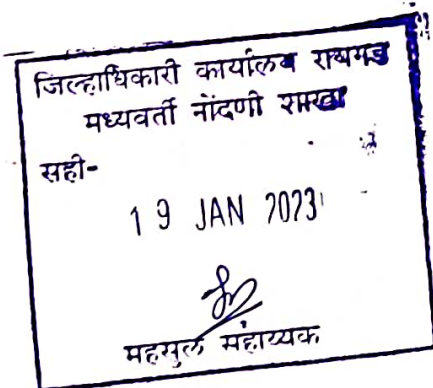 जिल्हाधिकारी कार्यालय रायगड
मध्यवर्ती नोंदणी शाखा
सही-
19 JAN 2023
महसुल सहाय्यक